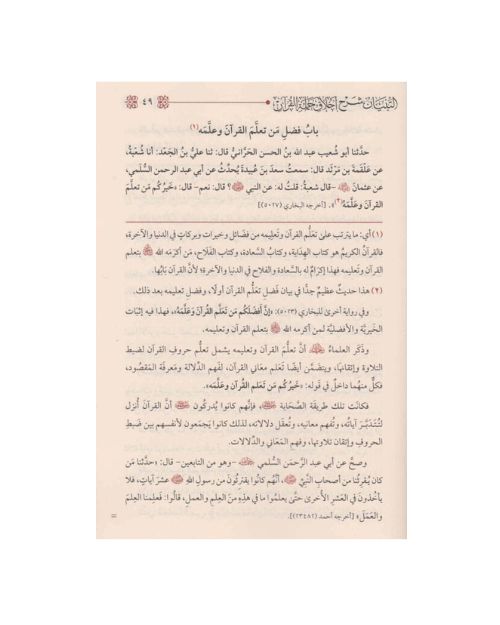 التبيان شرح أخلاق حملة القرآن ٤٩
بابُ فضلِ مَن تعلَّمَ القرآنَ وعلَّمَه(١)
حدَّثنا أبو شُعيب عبد الله بنُ الحسن الحَرَّانيُّ قال: ثنا عليُّ بنُ الجَعْد: أنا شُعْبةُ،
عن عَلْقَمةَ بن مَرْثَد قال: سمعتُ سعدَ بنَ عُبيدةَ يُحدِّثُ عن أبي عبد الرحمن السُّلَمي،
عن عثمانَ ﵁ -قال شعبةُ: قلتُ له: عن النبي ﷺ؟ قال: نعم- قال: «خَيرُكُم مَن تعلَّمَ
القرآنَ وعلَّمَهُ(٢)». [أخرجه البخاري (٥٠٢٧)]
(١) أي: ما يترتب على تعَلُّم القرآن وتَعليمه من فضائل وخيرات وبركاتٍ في الدنيا والآخرة،
فالقرآنُ الكريمُ هو كتاب الهداية، وكتابُ السَّعادة، وكتاب الفَلَاح، مَن أكرَمه الله ﷻ بتعلم
القرآن وتَعليمه فهذا إكرامٌ له بالسَّعادة والفلاح في الدنيا والآخرة؛ لأنَّ القرآن بَابُها.
(٢) هذا حديثٌ عظيمٌ جدًّا في بيان فَضل تَعَلُّم القرآن أولًا، وفَضل تعليمه بعد ذلك.
وفي رواية أخرى للبخاري (٥٠٢٣): «إنَّ أَفْضَلَكُم مَن تَعلَّمَ القُرآنَ وَعَلَّمَهُ»، فهذا فيه إثبات
الخيريَّة والأفضليَّة لمن أكرمه الله ﷻ بتعلم القرآن وتعليمه.
وذَكَر العلماءُ أنَّ تعلُّمَ القرآن وتعليمه يشمل تعلُّم حروفِ القرآن لضبط
التلاوة وإتقانها، ويتضمَّن أيضًا تَعلم معَاني القرآن، لفَهم الدِّلالة ومَعرفة المَقصُود،
فكلٌّ منهُما داخلٌ في قَوله: «خَيرُكُم مَن تعَلم القُرآن وعلَّمَه».
فكانَت تلك طريقَة الصَّحَابة ﵃، فإنَّهم كانوا يُدركُون أنَّ القرآنَ أُنزِل
لتُتَدَبَّـرَ آياتُه، وتُفهم معانيه، وتُعقَل دلالاته، لذلك كانوا يَجمَعون لأنفسهم بين ضَبطِ
الحروفِ وإتقان تلاوتها، وفهم المَعَاني والدِّلالات.
وصحَّ عن أبي عبد الرَّحمَن السُّلمي -وهو من التابعين- قال: «حدَّثنا مَن
كان يُقرِئُنا من أصحابِ النَّبِيِّ ﷺ، أنَّهم كانُوا يقترِئُون من رسول الله ﷺ عشرَ آياتٍ، فلا
يأخُذونَ في العَشرِ الأُخرى حتَّى يعلموا ما في هذِه منَ العِلمِ والعملِ، قالُوا: فَعَلِمنا العِلمَ
والعَمَلَ» [أخرجه أحمد (٢٣٤٨٢)].
=